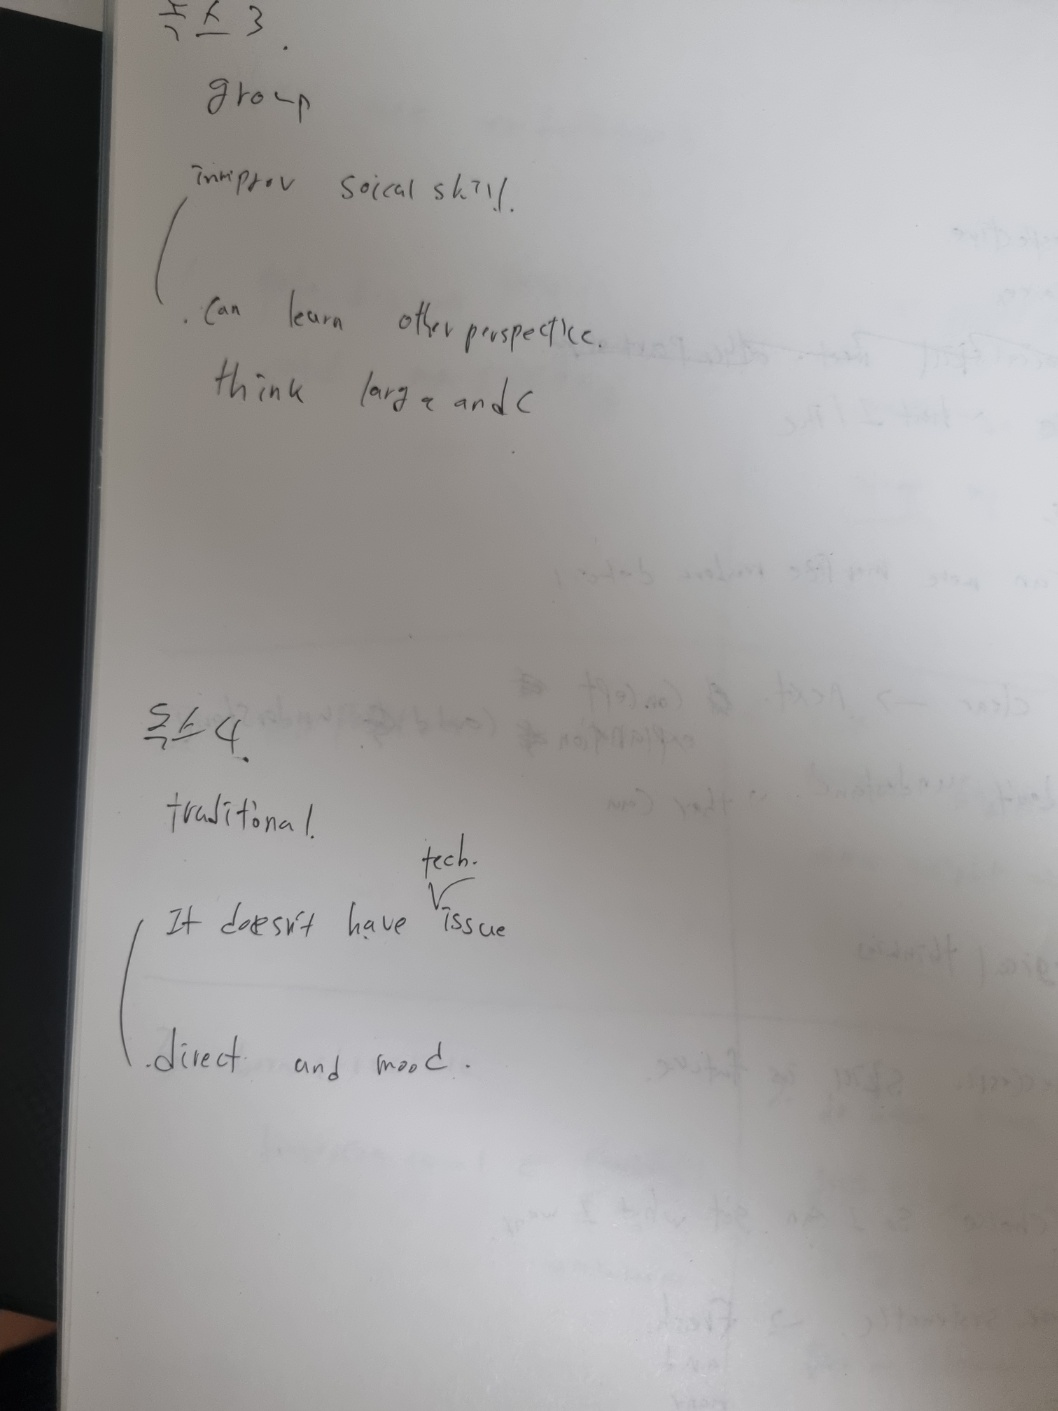 독스 3.
group
improv soical skill.
. Can learn other perspective.
think large and c
독스 4.
traditonal.
tech.
It doesn't have issue
. direct and mood.